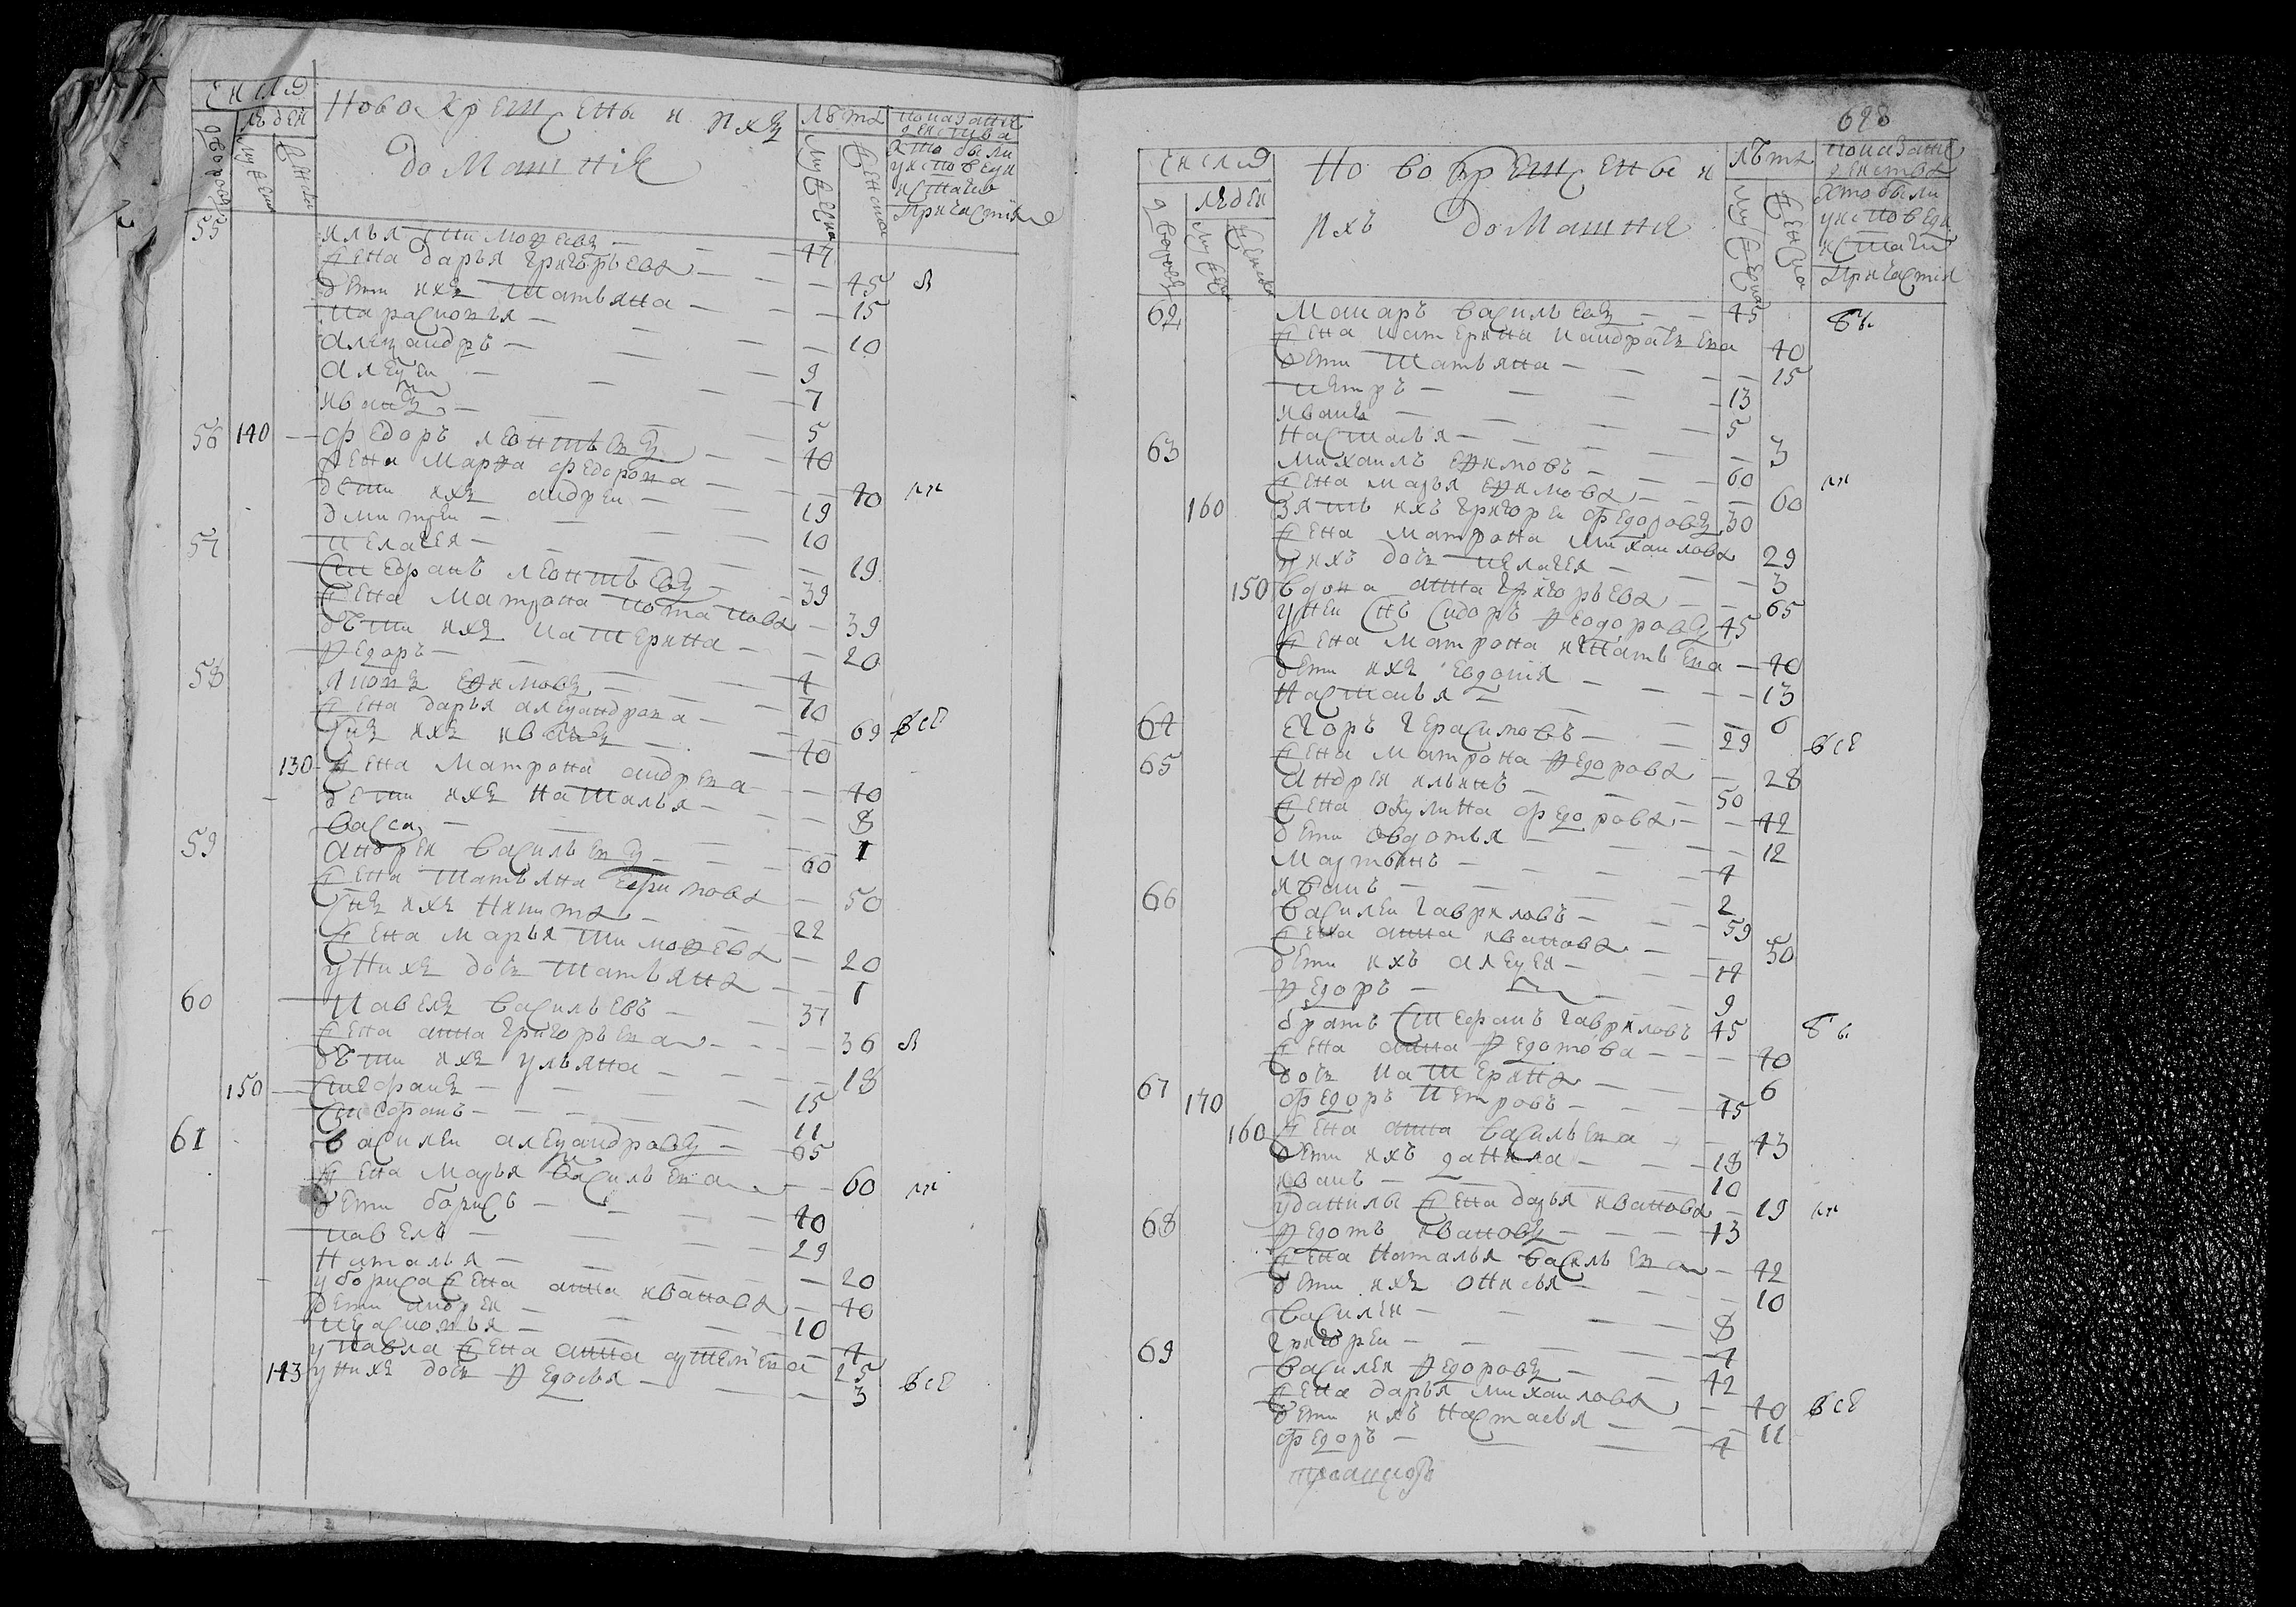 числа
Новокрещены и ихъ лѣта показание
дворовъ людей домашнiе действа
мужеска женска мужеска женска кто были
у исповеди
и святаго
причастия
55 илья тимофеевъ — 47
жена дарья григорьева — 45
дети ихъ татьяна — 15
парасковья — 10
алеѯандръ — 9
алеѯеи — 7
иванъ — 5
56 140 федоръ леонтьевъ — 40
жена марѳа федорова — 40
дети ихъ андреи — 19
дмитреи — 10
57 пелагея — 19
стефанъ леонтьевъ — 39
жена матрона потапова — 39
дѣти ихъ катерина — 20
ѳедоръ — 4
58 яковъ еѳимовъ — 70
жена дарья алеѯандрова — 69 все
сынъ ихъ иванъ — 40
130 жена матрона андреева — 40
дети ихъ наталья — 8
васса — 1
59 андреи васильевъ — 60
жена татьяна ефимова — 50
сынъ ихъ никита — 22
жена марья тимоѳеева — 20
у нихъ дочь татьяна — 1
60 павелъ васильевъ — 37
жена анна григорьева — 36
дѣти ихъ ульяна — 18
150 стефанъ — 15
стефанъ — 11
61 василеи алеѯандровъ — 65
жена марья васильева — 60
дети борисъ — 40
павелъ — 29
наталья — 20
у бориса жена анна иванова — 40
дети андреи — 10
парасковья — 4
у павла жена анна артемьева — 25
143 у нихъ дочь ѳедосья — 3 все
698
числа
Новокрещены и лѣта показание
дворовъ людей ихъ домашния действа
мужеска женска мужеска женска кто были
у исповеди
и святаго
причастия
62 макаръ васильевъ — 45
жена катерина кандратьева 40
дети татьяна — 15
петръ — 13
иванъ — 5
настасья — 3
63 михаилъ еѳимовъ — 60
жена марья еѳимова — 60
160 зять ихъ григореи федоровъ 30
жена матрона михаилова 29
у нихъ дочь пелагея — 3
150 вдова анна григорьева — 65
у неи сынъ сидоръ ѳеодоровъ 45
жена матрона игнатьева — 40
дети ихъ евдокiя — 13
настасья — 6
64 егоръ герасимовъ — 29 все
жена матрона ѳедорова — 28
65 андреи ильинъ — 50
жена окулина федорова — 42
дети овдотья — 12
мартынъ — 4
иванъ — 2
66 василеи гавриловъ — 59
жена анна иванова — 50
дети ихъ алеѯеи — 14
ѳедоръ — 9
братъ стефанъ гавриловъ 45
жена анна ѳедотова — 40
дочь катерина — 6
67 170 федоръ петровъ — 45
160 жена анна васильева — 43
дети ихъ данила — 18
иванъ — 10
у данилы жена дарья иванова — 19
68 ѳедотъ ивановъ — 43
жена наталья васильева — 42
дети ихъ онисья — 10
василеи — 8
григореи — 4
69 василеи ѳедоровъ — 42
жена дарья михаилова — 40 все
дети ихъ настасья — 11
федоръ — 4